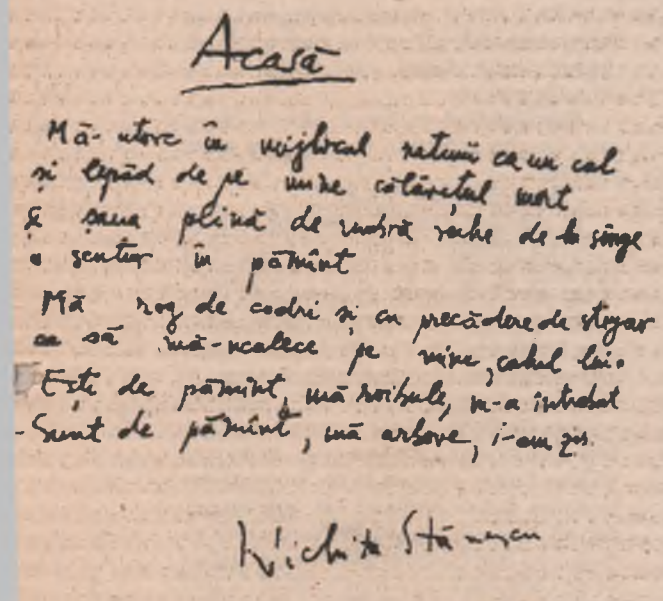 Acasă
Mă-ntorc în mijlocul naturii ca un cal
și lepăd de pe mine călărețul mort
Și șaua plină de umbră veche de la sînge
o scutur în pămînt
Mă rog de codri și cu precădere de stejar
ca să mă-ncalece pe mine, calul lui.
Ești de pămînt, mă roibule, m-a întrebat
-Sunt de pămînt, mă arbore, i-am zis.
Nichita Stănescu